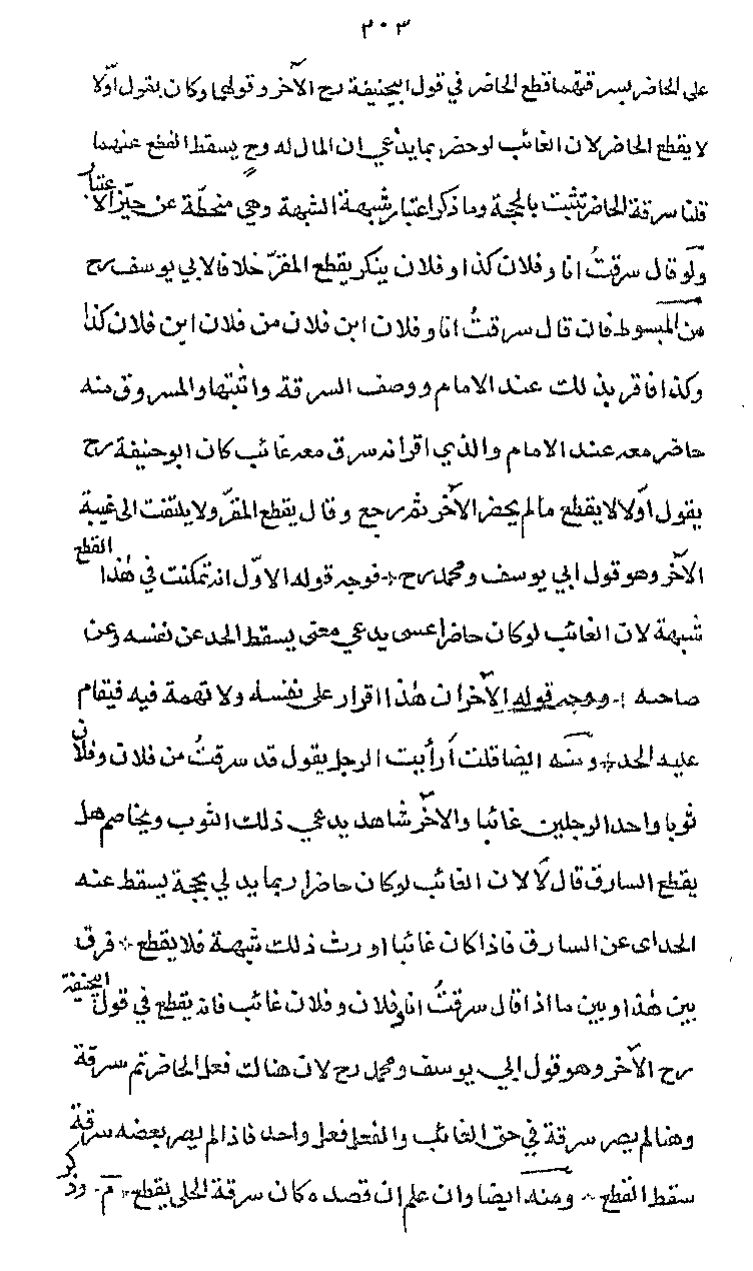 ٣٠٣
على الحاضر بسرقتهما قطع الحاضر في قول ابيحنيفة رح الآخر وقولهما وكان يقول اوّلا
لا يقطع الحاضر لان الغائب لو حضر بما يدعي ان المال له وح يسقط القطع عنهما
قلنا سرقة الحاضر تثبت بالحجة وما ذكر اعتبار شبهة الشبهة وهي منحطّة عن حيّز الاعتبار
ولو قال سرقتُ انا وفلان كذا وفلان ينكر يقطع المقرّ خلافا لابي يوسف رح
من المبسوط فان قال سرقتُ انا وفلان ابن فلان من فلان ابن فلان كذا
وكذا فاقر بذلك عند الامام ووصف السرقة واثبتها والمسروق منه
حاضر معه عند الامام والذي اقر انه سرق معه غائب كان ابو حنيفة رح
يقول اوّلا لا يقطع ما لم يحضر الآخر ثم رجع وقال يقطع المقرّ ولا يلتفت الى غيبة
الآخر وهو قول ابي يوسف ومحمد رح فوجه قوله الاوّل انه تمكنت في هذا القطع
شبهة لان الغائب لو كان حاضرا عسى يدعي معنى يسقط الحد عن نفسه وعن
صاحبه ووجه قوله الآخر ان هذا اقرار على نفسه ولا تهمة فيه فيقام
عليه الحد ومنه ايضا قلت أرأيت الرجل يقول قد سرقتُ من فلان وفلان
ثوبا واحد الرجلين غائبا والآخر شاهد يدعي ذلك الثوب ويخاصم هل
يقطع السارق قال لا لان الغائب لو كان حاضرا ربما يدلي بحجة يسقط عنه
الحد اى عن السارق فاذا كان غائبا اورث ذلك شبهة فلا يقطع فرق
بين هذا وبين ما اذا قال سرقتُ انا وفلان وفلان غائب فانه يقطع في قول ابيحنيفة
رح الآخر وهو قول ابي يوسف ومحمد رح لان هناك فعل الحاضر تم سرقة
وهنا لم يصر سرقة في حق الغائب والفعل فعل واحد فاذا لم يصر بعضه سرقة
سقط القطع ومنه ايضا وان علم ان قصده كان سرقة الحلى يقطع م وذكر